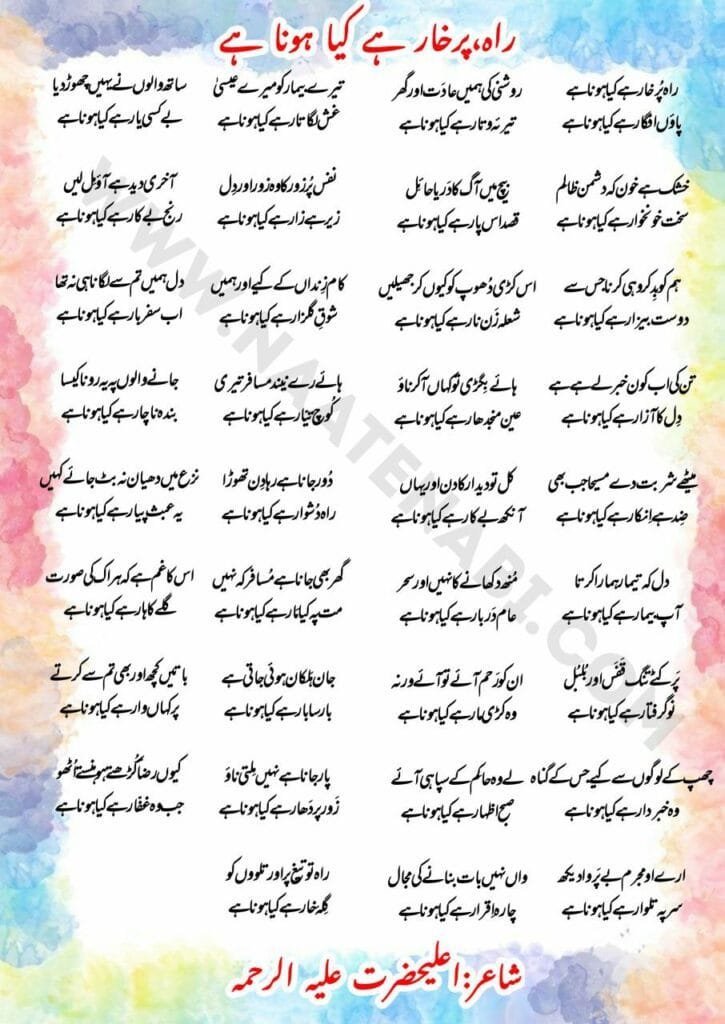 راہ، پر خار ہے کیا ہونا ہے
راہ پُرخار ہے کیا ہونا ہے
پاؤں افگار ہے کیا ہونا ہے
خشک ہے خون کہ دشمن ظالم
سخت خونخوار ہے کیا ہونا ہے
ہم کو بِد کر وہی کرنا جس سے
دوست بیزار ہے کیا ہونا ہے
تن کی اب کون خبر لے ہے ہے
دِل کا آزار ہے کیا ہونا ہے
میٹھے شربت دے مسیحا جب بھی
ضِد ہے اِنکار ہے کیا ہونا ہے
دل کہ تیمار ہمارا کرتا
آپ بیمار ہے کیا ہونا ہے
پَر کٹے تنگ قَفَس اور بُلبُل
نَوگرفتار ہے کیا ہونا ہے
چھپ کے لوگوں سے کیے جس کے گناہ
وہ خبردار ہے کیا ہونا ہے
ارے او مجرم بے پَروا دیکھ
سر پہ تلوار ہے کیا ہونا ہے
روشنی کی ہمیں عادت اور گھر
تیرئہ و تار ہے کیا ہونا ہے
بیچ میں آگ کا دَریا حائِل
قصد اس پار ہے کیا ہونا ہے
اس کڑی دُھوپ کو کیوں کر جھیلیں
شعلہ زَن نار ہے کیا ہونا ہے
ہائے بِگڑی تو کہاں آکر ناؤ
عین منجدھار ہے کیا ہونا ہے
کل تو دیدار کا دن اور یہاں
آنکھ بے کار ہے کیا ہونا ہے
مُنھ دکھانے کا نہیں اور سحر
عام دَربار ہے کیا ہونا ہے
ان کو رَحم آئے تو آئے ورنہ
وہ کڑی مار ہے کیا ہونا ہے
لے وہ حاکم کے سپاہی آئے
صبح اظہار ہے کیا ہونا ہے
واں نہیں بات بنانے کی مجال
چارہ اقرار ہے کیا ہونا ہے
تیرے بیمار کو میرے عیسیٰ
غش لگاتار ہے کیا ہونا ہے
نفس پُر زور کا وہ زور اور دِل
زیر ہے زار ہے کیا ہونا ہے
کام زِنداں کے کیے اور ہمیں
شوقِ گلزار ہے کیا ہونا ہے
ہائے رے نیند مسافر تیری
کُوچ تیّار ہے کیا ہونا ہے
دُور جانا ہے رہا دِن تھوڑا
راہ دُشوار ہے کیا ہونا ہے
گھر بھی جانا ہے مُسافر کہ نہیں
مت پہ کیا مار ہے کیا ہونا ہے
جان ہَلکان ہوئی جاتی ہے
بار سا بار ہے کیا ہونا ہے
پار جانا ہے نہیں مِلتی ناؤ
زَور پر دَھار ہے کیا ہونا ہے
راہ تو تیغ پر اور تلووں کو
گلۂ خار ہے کیا ہونا ہے
ساتھ والوں نے یہیں چھوڑ دیا
بے کسی یار ہے کیا ہونا ہے
آخری دید ہے آؤ مِل لیں
رنج بے کار ہے کیا ہونا ہے
دل ہمیں تم سے لگانا ہی نہ تھا
اب سفر بار ہے کیا ہونا ہے
جانے والوں پہ یہ رونا کیسا
بندہ ناچار ہے کیا ہونا ہے
نزع میں دھیان نہ بٹ جائے کہیں
یہ عبث پیار ہے کیا ہونا ہے
اس کا غم ہے کہ ہر اک کی صورت
گلے کا ہار ہے کیا ہونا ہے
باتیں کچھ اور بھی تم سے کرتے
پر کہاں وار ہے کیا ہونا ہے
کیوں رضا کُڑھتے ہو ہنستے اُٹھو
جب وہ غفار ہے کیا ہونا ہے
شاعر: اعلیحضرت علیہ الرحمہ
WWW.NAATENABI.COM